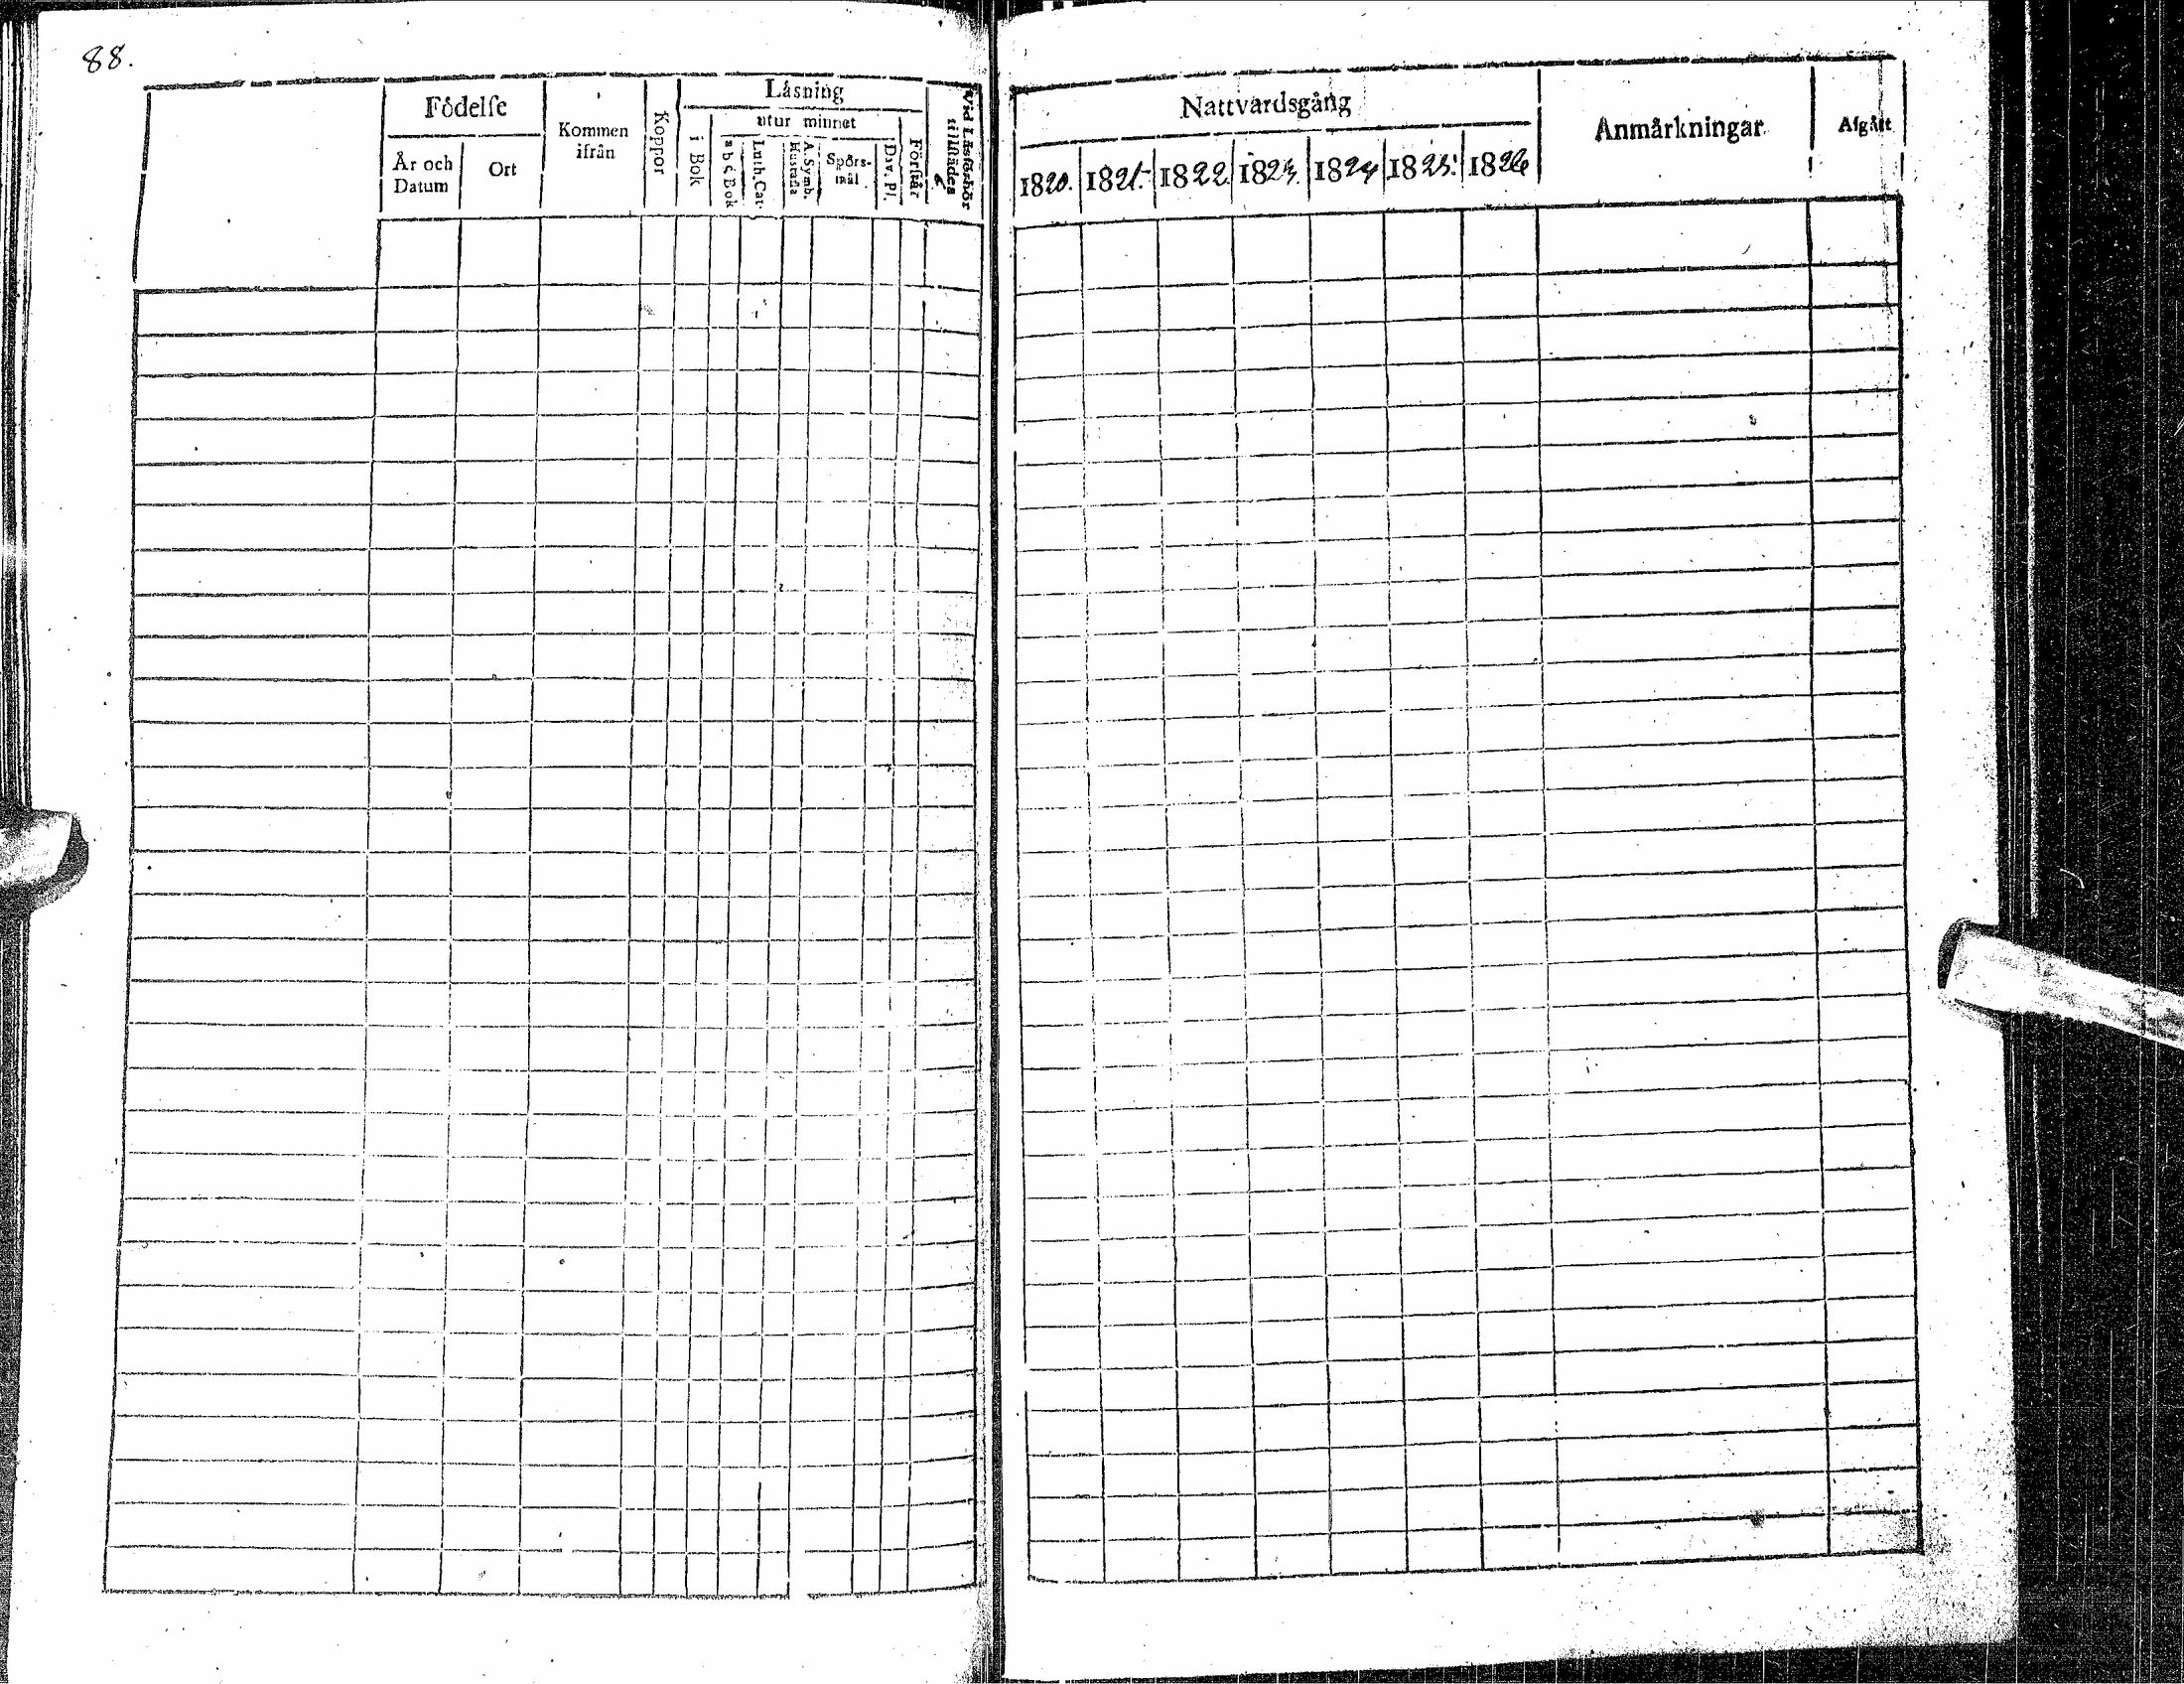 88.
Födelse
År och Datum
Ort
Kommen ifrån
Koppor
Läsning
i Bok
utur minnet
a b c Bok
Luth. Cat.
A. Symb. Hustafla
Spörs-mål
Dav. Pl.
Förstår
Vid Läsförhör tillstädes
Nattvardsgång
1820. 1821. 1822 1823. 1824 1825. 1826
Anmärkningar
Afgått